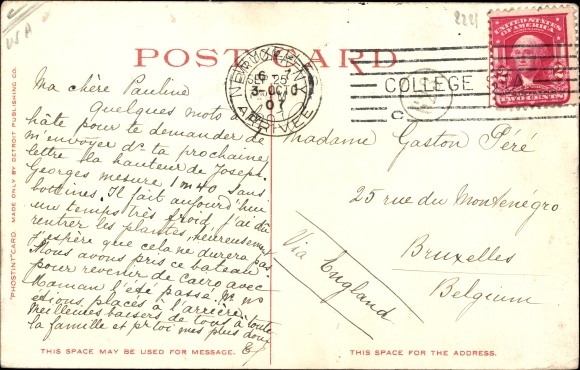 USA
222f
POST CARD
UNITED STATES OF AMERICA
TWO CENTS
BRUXELLES
3-OCTO
07
ARRIVEE
COLLEGE
C
Ma chère Pauline
Quelques mots à
hâte pour te demander de
m'envoyer ds ta prochaine
lettre la hauteur de Joseph.
Georges mesure 1m40 sans
bottines. Il fait aujourd'hui
un temps très froid, j'ai dû
rentrer les plantes, heureusement
j'espère que cela ne durera pas.
Nous avons pris ce bateau
pour revenir de Cairo avec
Maman l'été passé. Ns ns
étions placés à l'arrière
Meilleures baisers de tous à toute
la famille et pr toi mes plus doux
E
Madame Gaston Péré
25 rue du Monténégro
Bruxelles
Belgium
Via England
"PHOSTINT" CARD. MADE ONLY BY DETROIT PUBLISHING CO.
THIS SPACE MAY BE USED FOR MESSAGE.
THIS SPACE FOR THE ADDRESS.